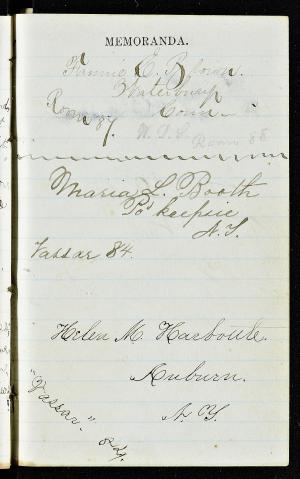 MEMORANDA.
Fannie E. Brown.
Waterbury
Room 87. Conn.
N. D. S.
Room 88
Maria L. Booth
Po'keepsie
N.Y.
Vassar 84.
Helen M.
Auburn.
N.Y.
"Vassar" 84.